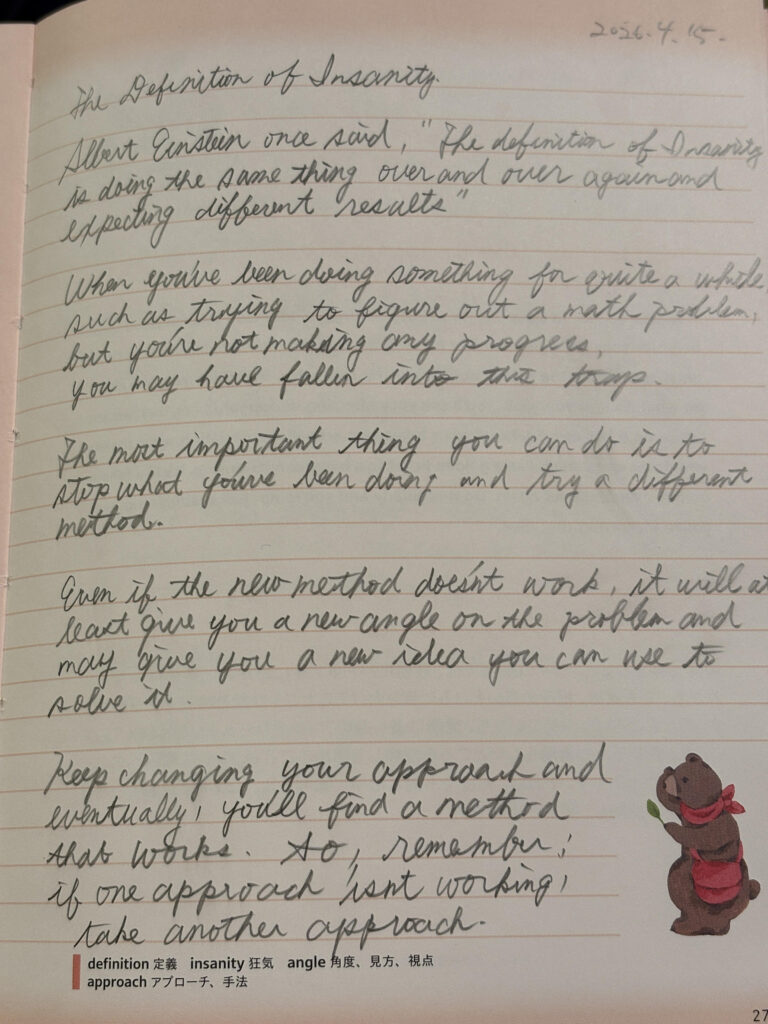 2026.4.15.
The Definition of Insanity.
Albert Einstein once said, "The definition of Insanity
is doing the same thing over and over again and
expecting different results"
When you've been doing something for quite a while,
such as trying to figure out a math problem,
but you're not making any progress,
you may have fallen into this trap.
The most important thing you can do is to
stop what you've been doing and try a different
method.
Even if the new method doesn't work, it will at
least give you a new angle on the problem and
may give you a new idea you can use to
solve it.
Keep changing your approach and
eventually, you'll find a method
that works. So, remember;
if one approach isn't working,
take another approach.
definition 定義 insanity 狂気 angle 角度、見方、視点
approach アプローチ、手法
27